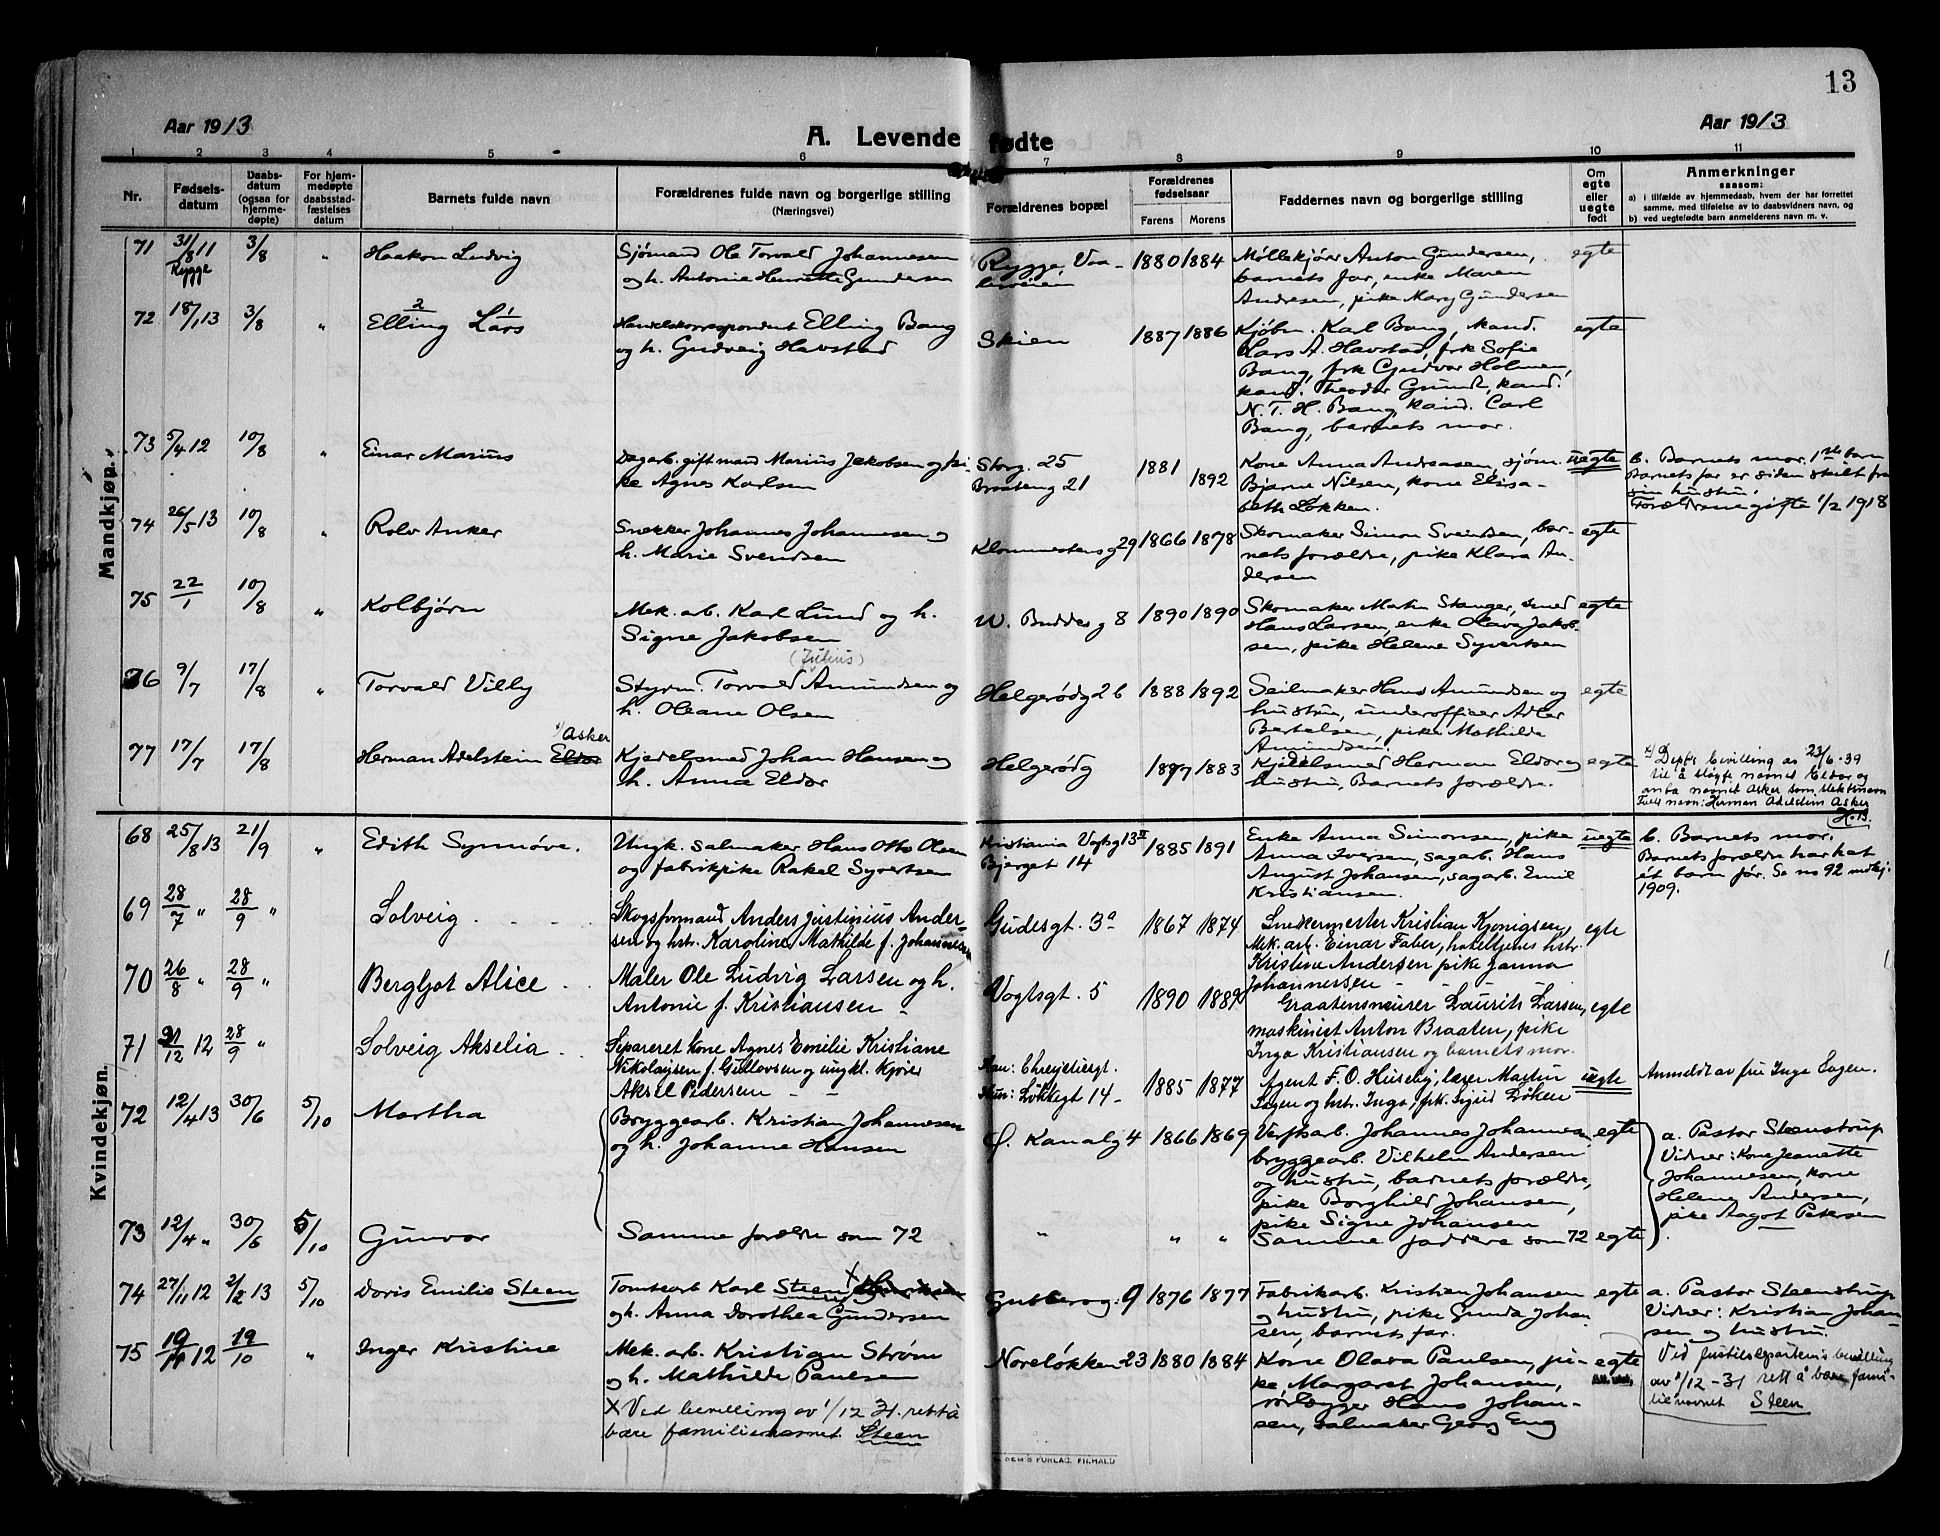 13
Aar 1913
A. Levende fødte
Aar 1913
1 2 3 4 5 6 7 8 9 10 11
Nr.
Fødsels-
datum
Daabs-
datum
(ogsaa for
hjemme-
døpte)
For hjem-
medøpte
daabsstad-
fæstelses
datum
Barnets fulde navn
Forældrenes fulde navn og borgerlige stilling
(Næringsvei)
Forældrenes bopæl
Forældrenes
fødselsaar
Farens Morens
Faddernes navn og borgerlige stilling
Om
egte
eller
uegte
født
Anmerkninger
saasom:
a) i tilfælde av hjemmedaab, hvem der har forrettet
samme, med tilføielse av to daabsvidners navn, og
b) ved uegtefødte barn anmelderens navn m. v.
Mandkjøn.
71 31/8 11 3/8 " Haakon Ludvig
Rygge
Sjømand Ole Torvald Johannesen
og h. Antonie Henriette Gundersen
Rygge, Vaa-
lerveien
1880 1884
Møllekjører Anton Gundersen,
barnets far, enke Maren
Andresen, pike Mary Gundersen
egte
72 18/1 13 3/8 " Elling Lars
2 1
Handelskorrespondent Elling Bang
og h. Gudveig Havstad
Skien
1887 1886
Kjøbm. Karl Bang, kand.
Lars A. Havstad, frk Sofie
Bang, frk Gudvor Holmen,
kand. Theodor Grundt, kand.
N. T. H. Bang, kand. Carl
Bang, barnets mor.
egte
73 5/4 12 10/8 " Einar Marius
Dagarb. gift mand Marius Jakobsen og pi-
ke Agnes Karlsen
Storg. 25
Braateng 21
1881 1892
Kone Anna Andreasen, sjøm.
Bjarne Nilsen, kone Elisa-
beth Løkken.
uegte
b. Barnets mor. 1ste barn
Barnets far er siden skilt fra
sin hustru.
Forældrene gifte 1/2 1918
74 26/5 13 10/8 " Rolv Anker
Snekker Johannes Johannesen og
h. Marie Svendsen
29 1866 1878
Skomaker Simon Svendsen, bar-
nets forældre, pike Klara An-
dersen
egte
75 22/1 10/8 " Kolbjørn
Mek. arb. Karl Lund og h.
Signe Jakobsen
W. Budde g 8
1890 1890
Skomaker Martin Stanger, smed
Hans Larsen, enke Olava Jakob-
sen, pike Helene Syvertsen
egte
76 9/7 17/8 " Torvald Villy
(Julius)
Styrm. Torvald Amundsen og
h. Oleane Olsen
Helgerødg 26
1888 1892
Seilmaker Hans Amundsen og
hustru, underofficer Adler
Bertelsen, pike Mathilde
Amundsen.
egte
77 17/7 17/8 Herman Adelstein Eldor
x) Asker
Kjedelsmed Johan Hansen og
h. Anna Eldor
Helgerødg
1877 1883
Kjedelsmed Herman Eldor og
hustru, Barnets forældre.
egte
x) Depts bevilling av 23/6-39
til å sløyfe navnet Eldor og
anta navnet Asker som slektsnavn
Fullt navn: Herman Adelstein Asker
H.B.
Kvindekjøn.
68 25/8 13 21/9 " Edith Synnøve.
Ungk. salmaker Hans Otto Olsen
og fabrikpike Rakel Syvertsen
Kristiania Vogtsg 13 II
Bjerget 14
1885 1891
Enke Anna Simonsen, pike
Anna Iversen, sagarb. Hans
August Johansen, sagarb. Emil
Kristiansen.
uegte
b. Barnets mor.
Barnets forældre har hat
ét barn før. Se no 92 mdkj.
1909.
69 28/7 " 28/9 " Solveig
Skogsformand Anders Justinius Ander-
sen og hst. Karoline Mathilde f. Johannesen
Gudesgt. 3a
1867 1874
Snekkermester Kristian Kjønigsen,
Mek. arb. Einar Faber, hoteltjeners hstr.
Kristine Andersen pike Janna
Johannessen
egte
70 26/8 " 28/9 " Bergljot Alice
Maler Ole Ludvig Larsen og h.
Antonie f. Kristiansen
Vogtsgt. 5
1890 1889
Laurits Larsen,
maskinist Anton Braaten, pike
Inga Kristiansen og barnets mor.
egte
71 31/12 12 28/9 " Solveig Akselia
Separeret kone Agnes Emilie Kristiane
Nikolaysen f. Gullovsen og ungkl. kjører
Aksel Pedersen
Hun: Løkkegt 14
1885 1877
Agent F. O. Huseby, lærer Martin
Sogen og hst. Inga, frk. Sigrid Løken
uegte
Anmeldt av fru Inga Sogen.
72 12/4 13 30/6 5/10 Martha
Bryggearb. Kristian Johannesen
og h. Johanne Hansen
Ø. Kanalg 4
1866 1869
Verftsarb. Johannes Johannesen
bryggearb. Vilhelm Andersen
og hustru, barnets forældre,
pike Borghild Johansen,
pike Signe Johansen
egte
a. Pastor Steenstrup
Vidner: Kone Jeanette
Johannesen, kone
Helene Andersen,
pike Aagot Petersen
73 12/4 " 30/6 5/10 Gunvor
Samme forældre som 72
" " "
Samme faddere som 72 egte
74 27/11 12 2/2 13 5/10 Doris Emilie Steen
Tomtearb Karl Steen x
og h. Anna Dorothea Gundersen
9 1876 1877
Fabrikarb. Kristian Johansen
og hustru, pike Gunda Johan-
sen, barnets far.
egte
a. Pastor Steenstrup
Vidner: Kristian Johan-
sen og hustru.
75 19/11 12 19/10 " Inger Kristine
Mek. arb. Kristian Strøm
og h. Mathilde Paulsen
Noreløkken 23
1880 1884
Kone Olava Paulsen, pi-
ke Margaret Johansen,
rørlægger Hans Johan-
sen, salmaker Georg Eng
egte
Ved justisdepartem's bevilling
av 1/12-31 rett å bære fami-
lienavnet Steen
x Ved bevilling av 1/12 31. rett å
bære familienavnet Steen
SEM'S FORLAG. FR.HALD